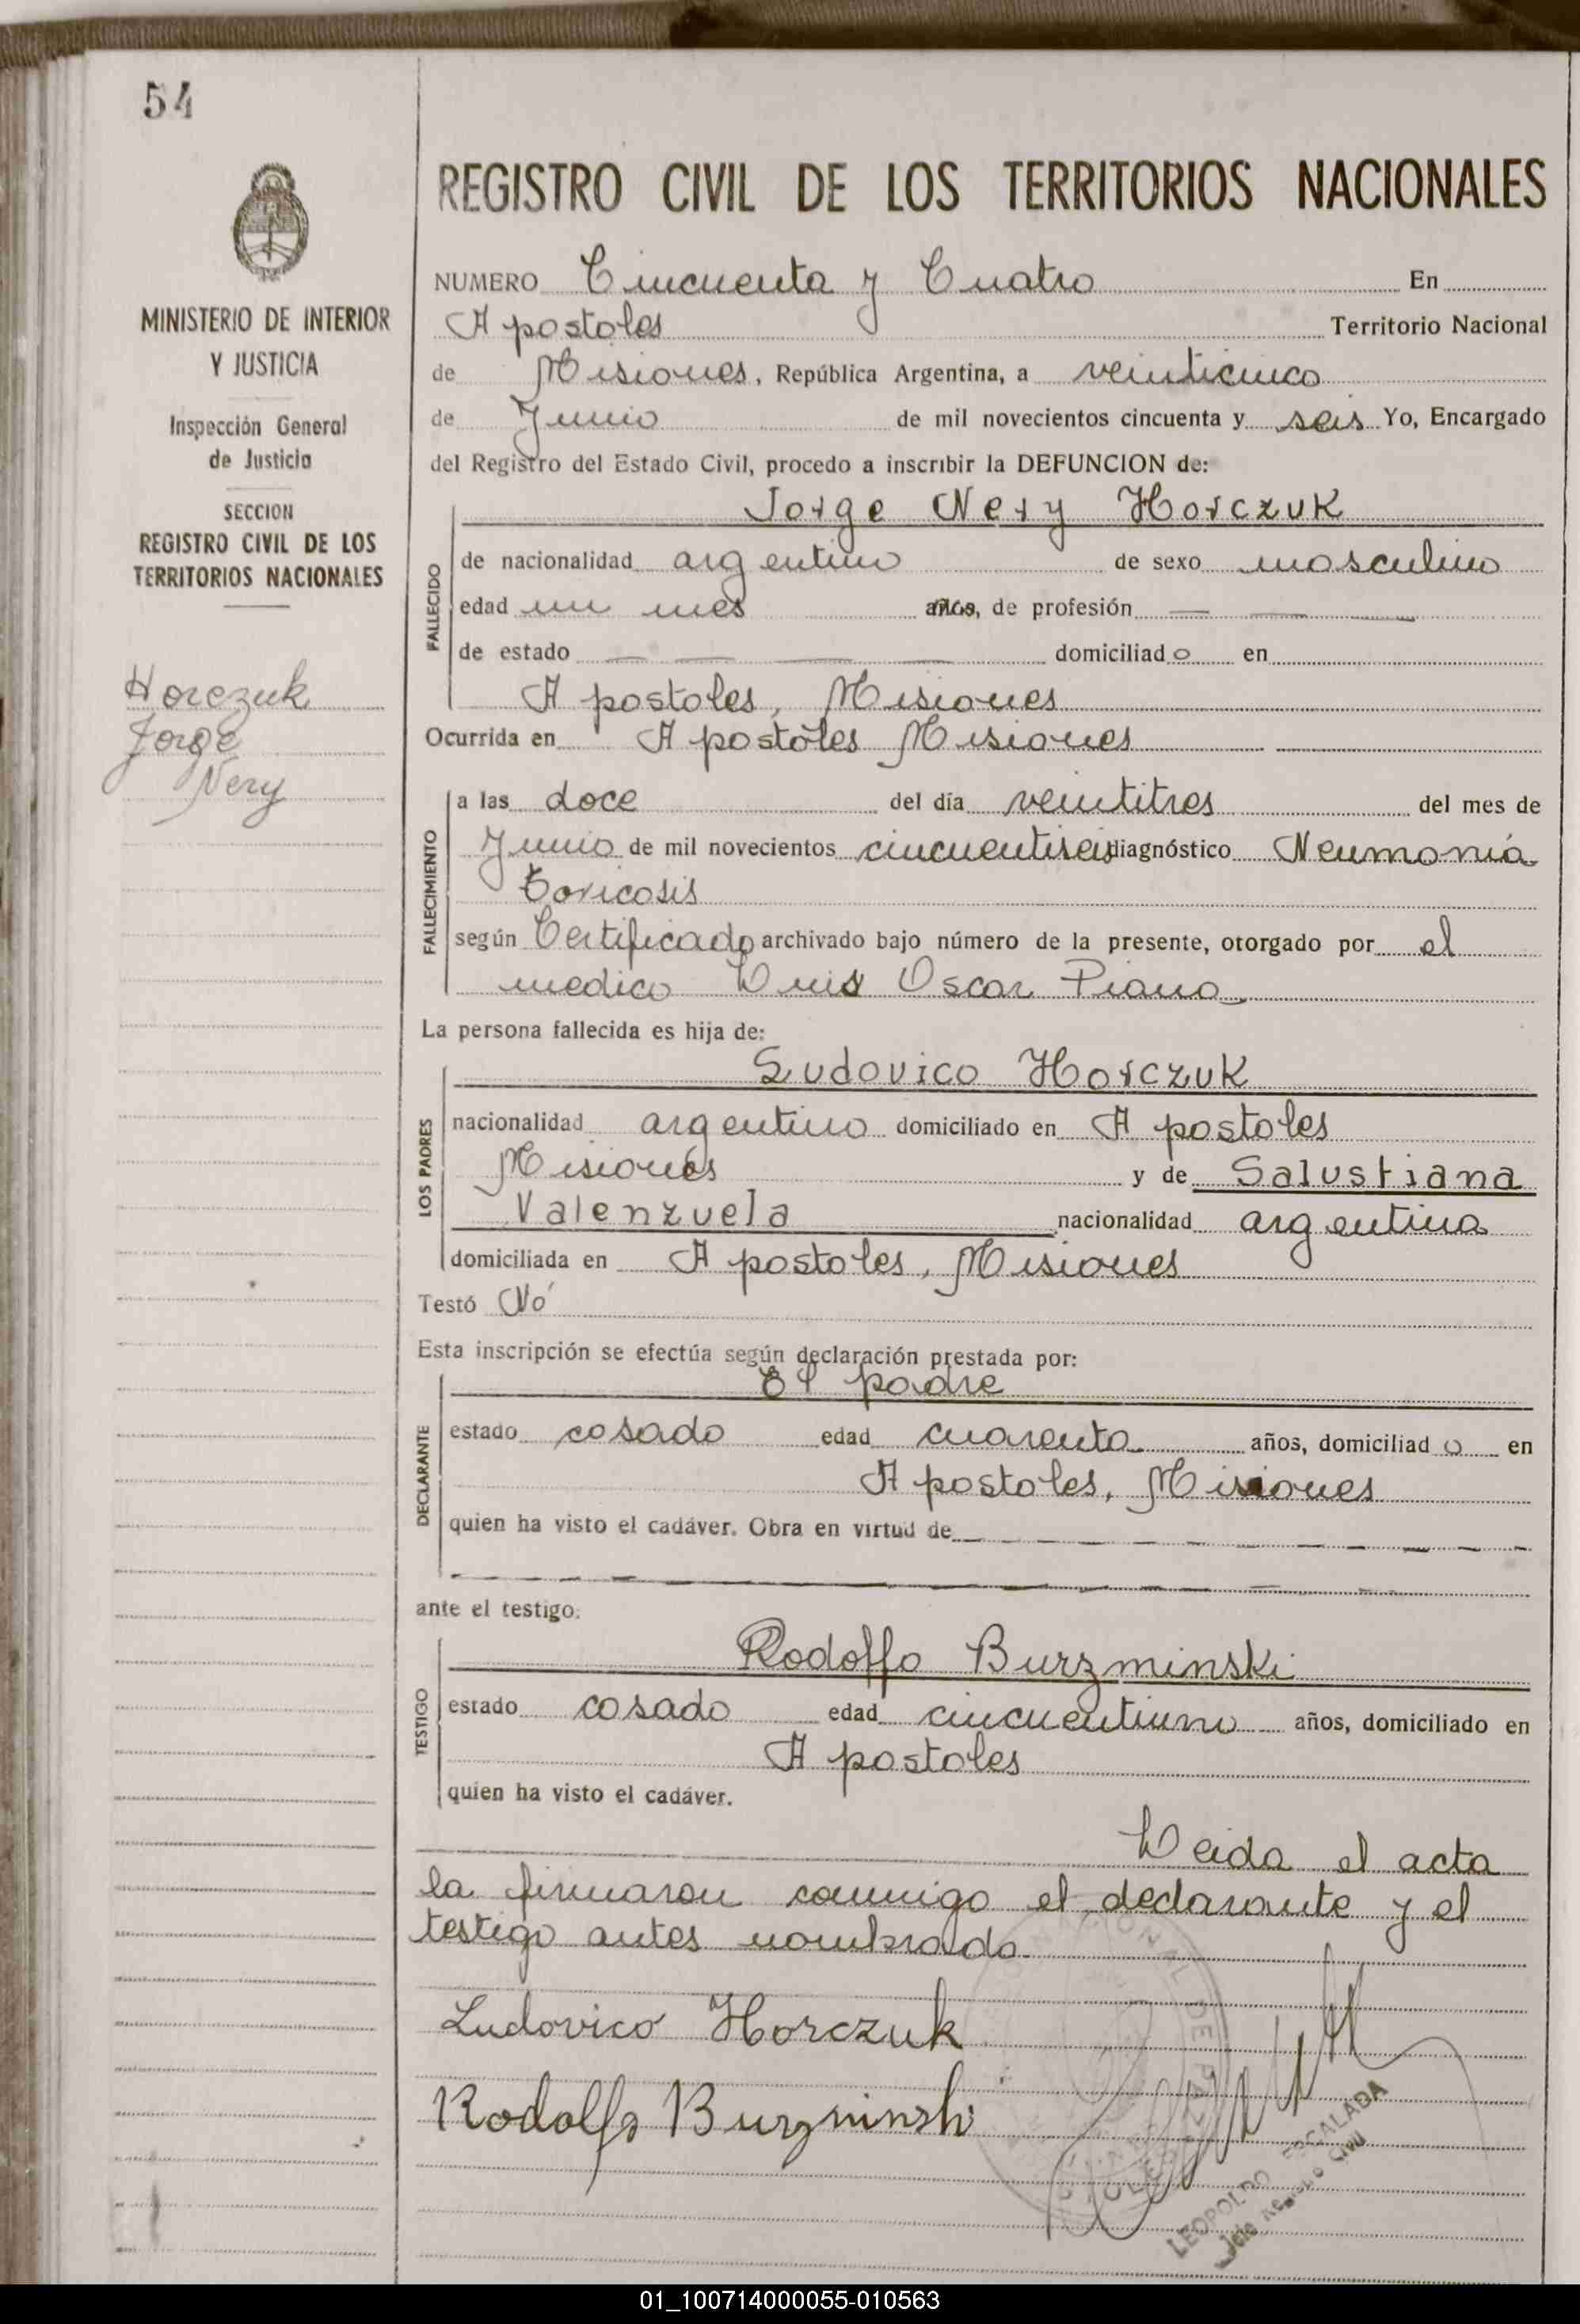 54
REGISTRO CIVIL DE LOS TERRITORIOS NACIONALES
MINISTERIO DE INTERIOR
Y JUSTICIA
Inspección General
de Justicia
SECCION
REGISTRO CIVIL DE LOS
TERRITORIOS NACIONALES
Horczuk
Jorge
Nery
NUMERO Cincuenta y Cuatro En
Apostoles Territorio Nacional
de Misiones, República Argentina, a veinticinco
de Junio de mil novecientos cincuenta y seis Yo, Encargado
del Registro del Estado Civil, procedo a inscribir la DEFUNCION de:
Jorge Nery Horczuk
FALLECIDO
de nacionalidad argentino de sexo masculino
edad un mes años, de profesión
de estado domiciliado en
Apostoles, Misiones
Ocurrida en Apostoles Misiones
FALLECIMIENTO
a las doce del día veintitres del mes de
Junio de mil novecientos cincuentiseis diagnóstico Neumonia
Toxicosis
según Certificado archivado bajo número de la presente, otorgado por el
medico Luis Oscar Piano
La persona fallecida es hija de:
Ludovico Horczuk
LOS PADRES
nacionalidad argentino domiciliado en Apostoles
Misiones y de Salustiana
Valenzuela nacionalidad argentina
domiciliada en Apostoles, Misiones
Testó No
Esta inscripción se efectúa según declaración prestada por:
El padre
DECLARANTE
estado casado edad cuarenta años, domiciliado en
Apostoles, Misiones
quien ha visto el cadáver. Obra en virtud de
ante el testigo:
Rodolfo Burzminski
TESTIGO
estado casado edad cincuentiuno años, domiciliado en
Apostoles
quien ha visto el cadáver.
Leida el acta
la firmaron conmigo el declarante y el
testigo antes nombrado.
Ludovico Horczuk
Rodolfo Burzminski
LEOPOLDO ESCALADA
Jefe Registro Civil
01_100714000055-010563